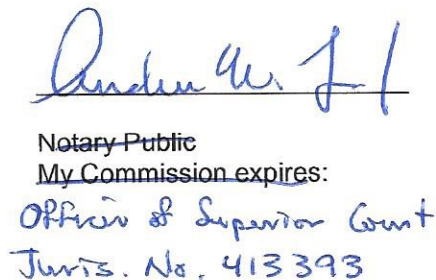 Notary Public
My Commission expires:
Officer of Superior Court
Juris. No. 413393